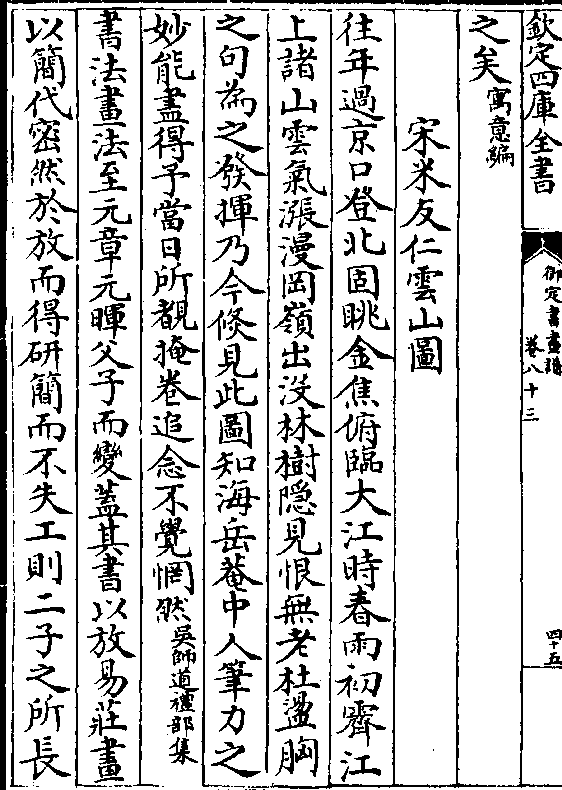 欽定四庫全書
御定書畫譜
卷八十三
四十五
之矣寓意編
宋米友仁雲山圖
往年過京口登北固眺金焦俯臨大江時春雨初霽江
上諸山雲氣漲漫岡嶺出没林樹隠見恨無老杜盪胸
之句為之發揮乃今倐見此圖知海岳菴中人筆力之
妙能盡得予當日所覩掩卷追念不覺惘然吳師道禮部集
書法畫法至元章元暉父子而變葢其書以放易莊畫
以簡代密然於放而得研簡而不失工則二子之所長